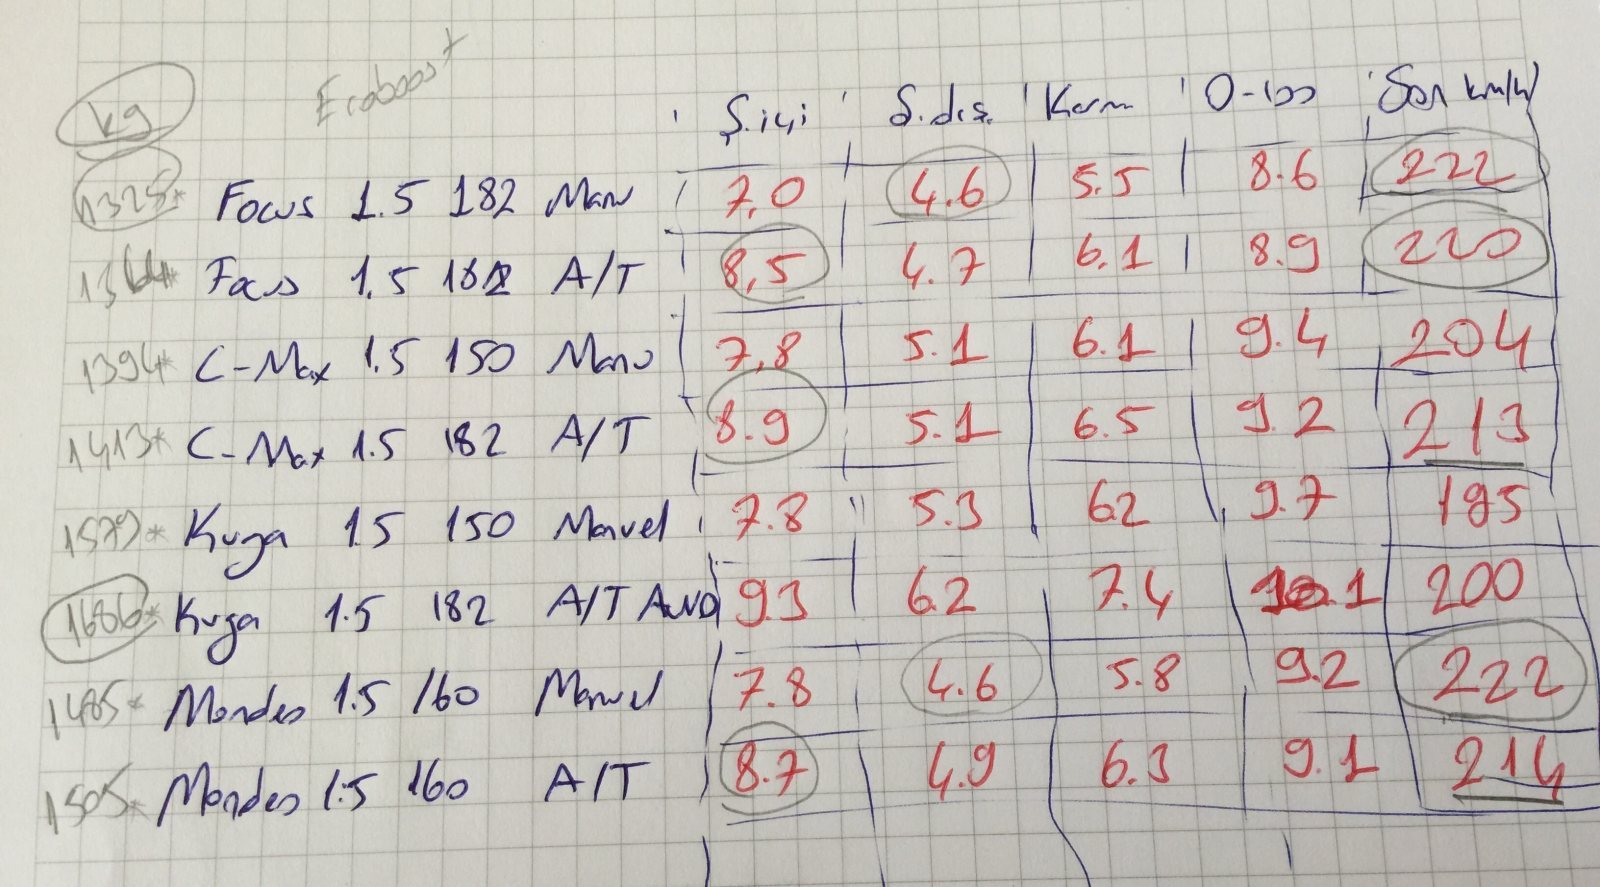 Ecoboost
kg Ş.içi Ş.dış. Karm 0-100 Son km/h
1325* Focus 1.5 182 Manu 7,0 4.6 5.5 8.6 222
1364* Focus 1.5 182 A/T 8,5 4.7 6.1 8.9 220
1394* C-Max 1.5 150 Manu 7,8 5.1 6.1 9.4 204
1413* C-Max 1.5 182 A/T 8.9 5.1 6.5 9.2 213
1579* Kuga 1.5 150 Manuel 7.8 5.3 62 9.7 195
1686* Kuga 1.5 182 A/T AWD 93 6.2 7.4 10.1 200
1485* Mondeo 1.5 160 Manuel 7.8 4.6 5.8 9.2 222
1505* Mondeo 1.5 160 A/T 8.7 4.9 6.3 9.1 214